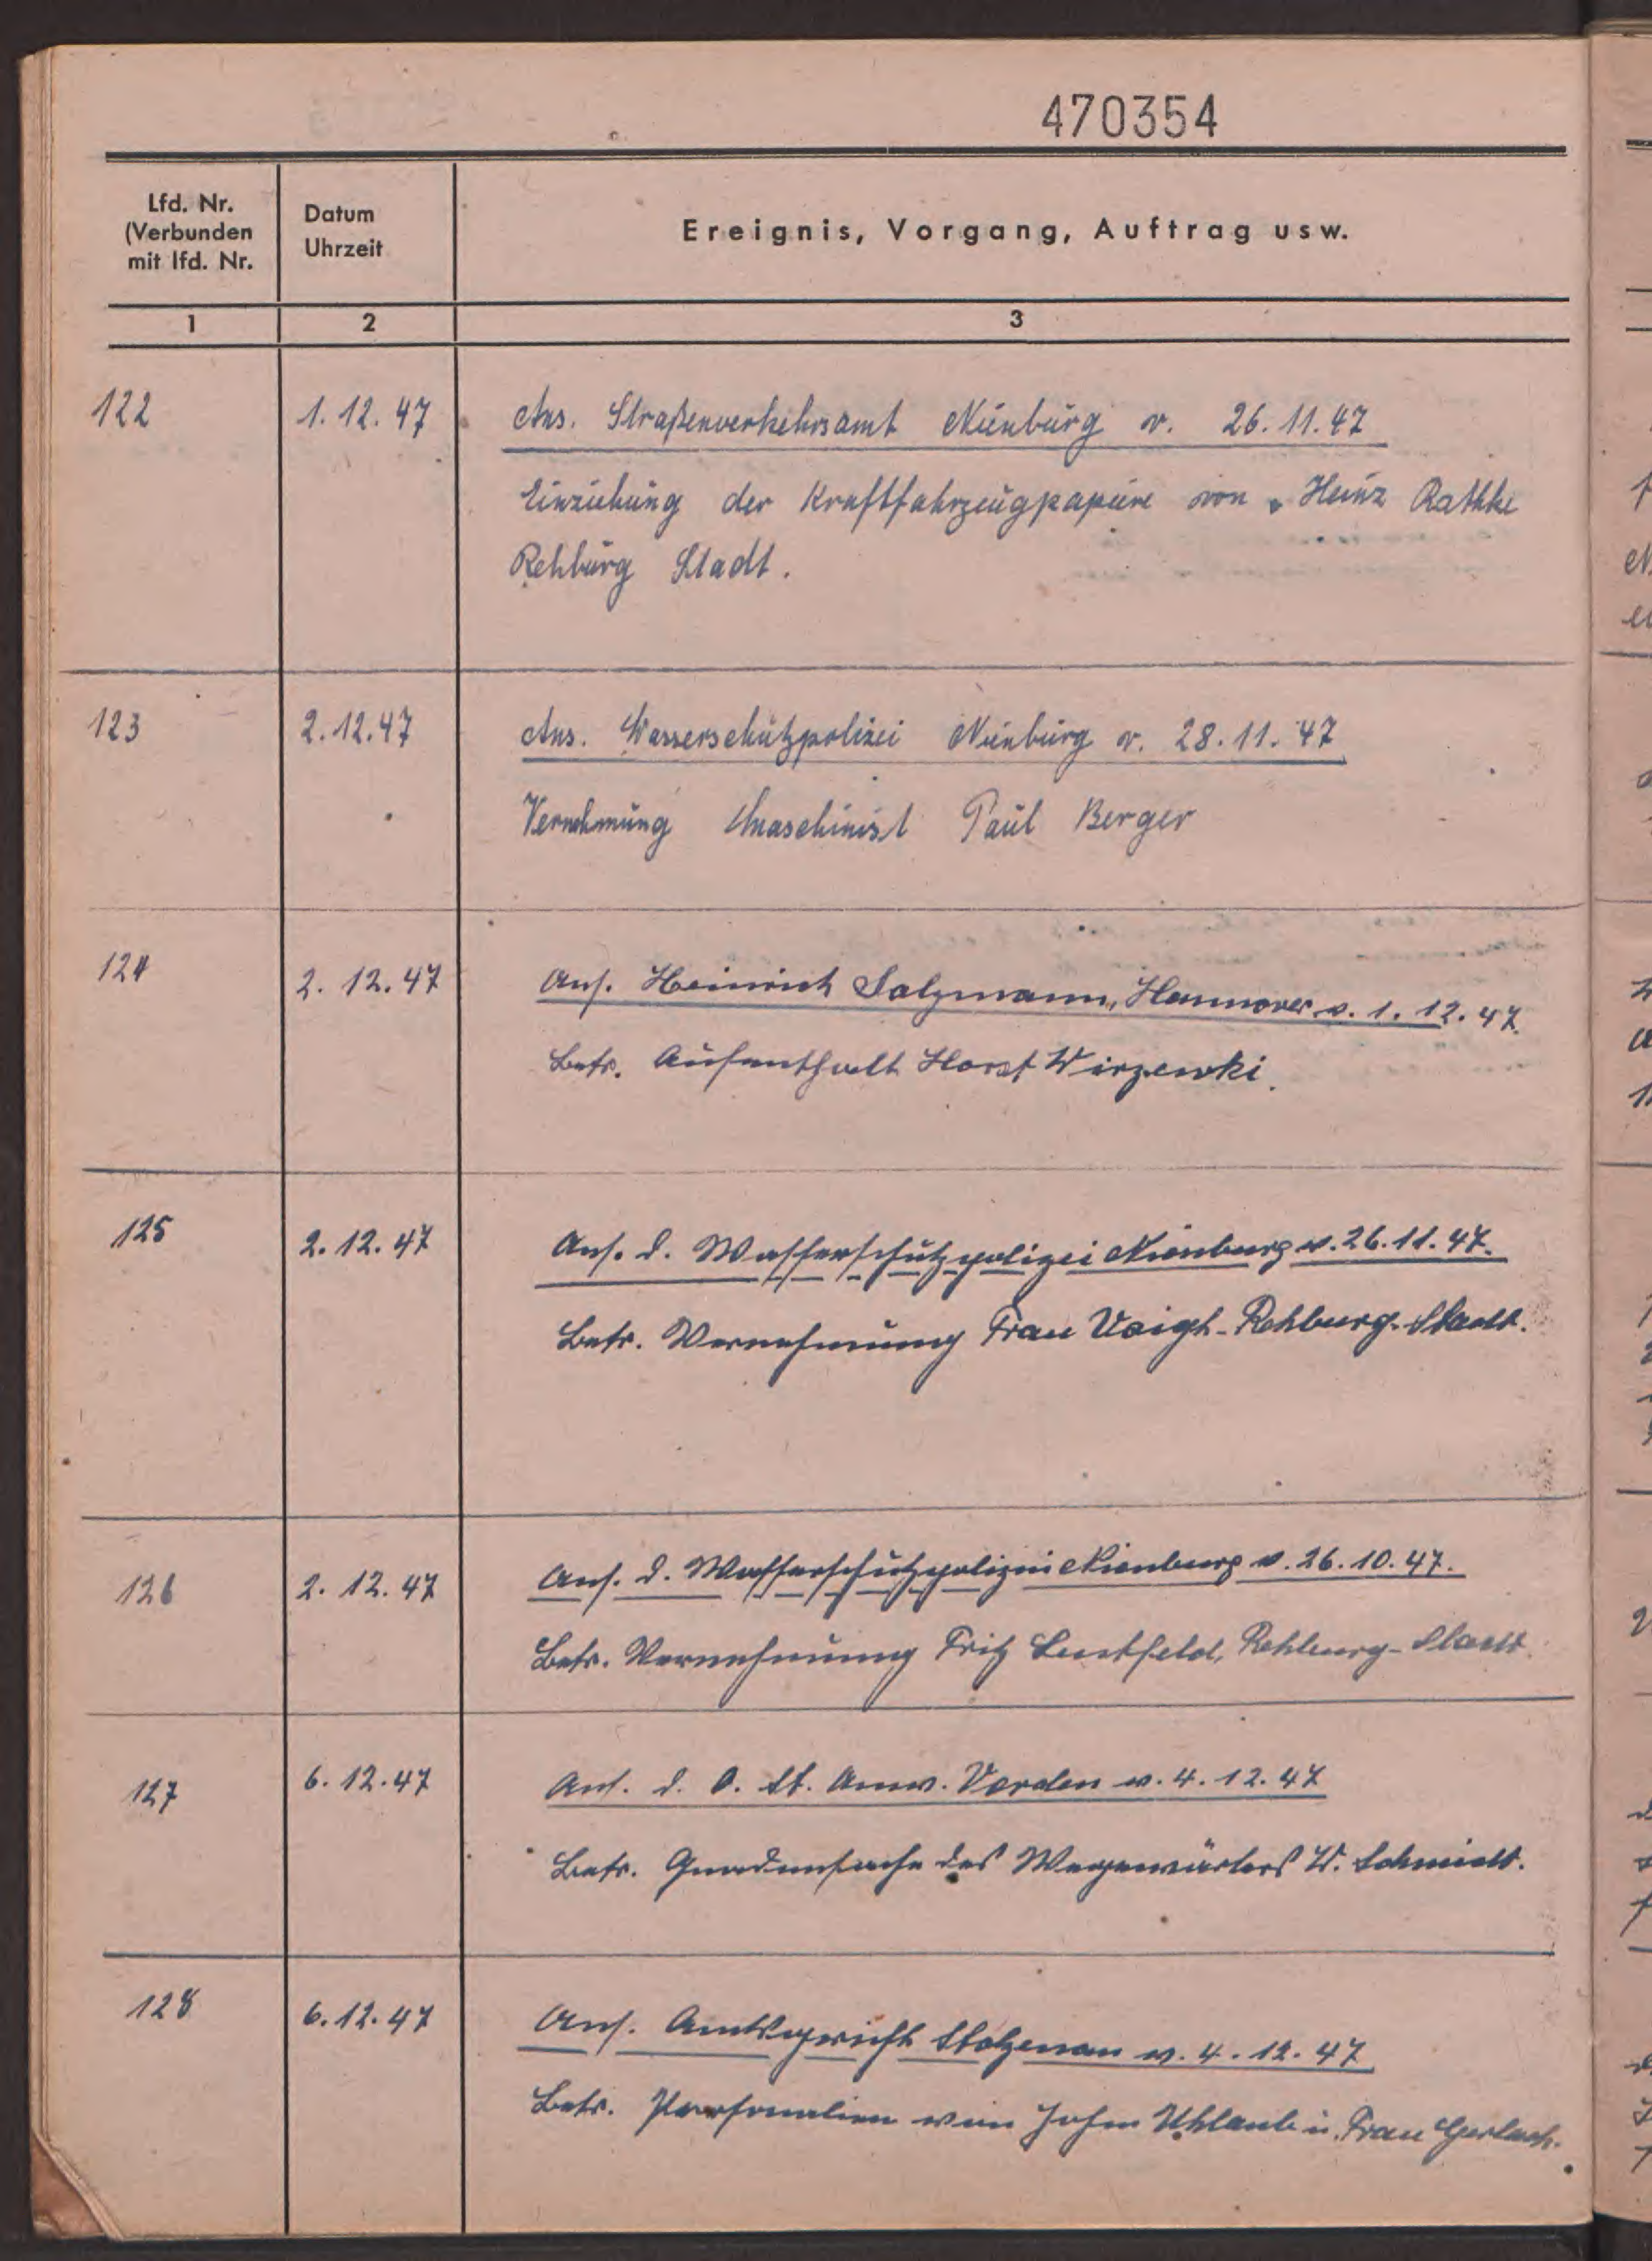 470354
Lfd. Nr.
(Verbunden
mit lfd. Nr.
Datum
Uhrzeit
Ereignis, Vorgang, Auftrag usw.
1 2 3
122 1.12.47 Ans. Straßenverkehrsamt Nienburg v. 26.11.47
Einziehung der Kraftfahrzeugpapiere von Heinz Rathke
Rehburg Stadt.
123 2.12.47 Ans. Wasserschutzpolizei Nienburg v. 28.11.47
Vernehmung Maschinist Paul Berger
124 2.12.47 Ans. Heinrich Salzmann, Hannover v. 1.12.47.
Betr. Aufenthalt Horst Wirzewki.
125 2.12.47 Ans. d. Wasserschutzpolizei Nienburg v. 26.11.47.
Betr. Vernehmung Frau Voigt-Rehburg-Stadt.
126 2.12.47 Ans. d. Wasserschutzpolizei Nienburg v. 26.10.47.
Betr. Vernehmung Fritz Lustfeld, Rehburg-Stadt.
127 6.12.47 Ans. d. O. St. Anw. Verden v. 4.12.47
Betr. Gnadensache des Wegewärters W. Schmidt.
128 6.12.47 Ans. Amtsgericht Stolzenau v. 4.12.47
Betr. Personalien von John Uhlaub u. Frau Gerlach.